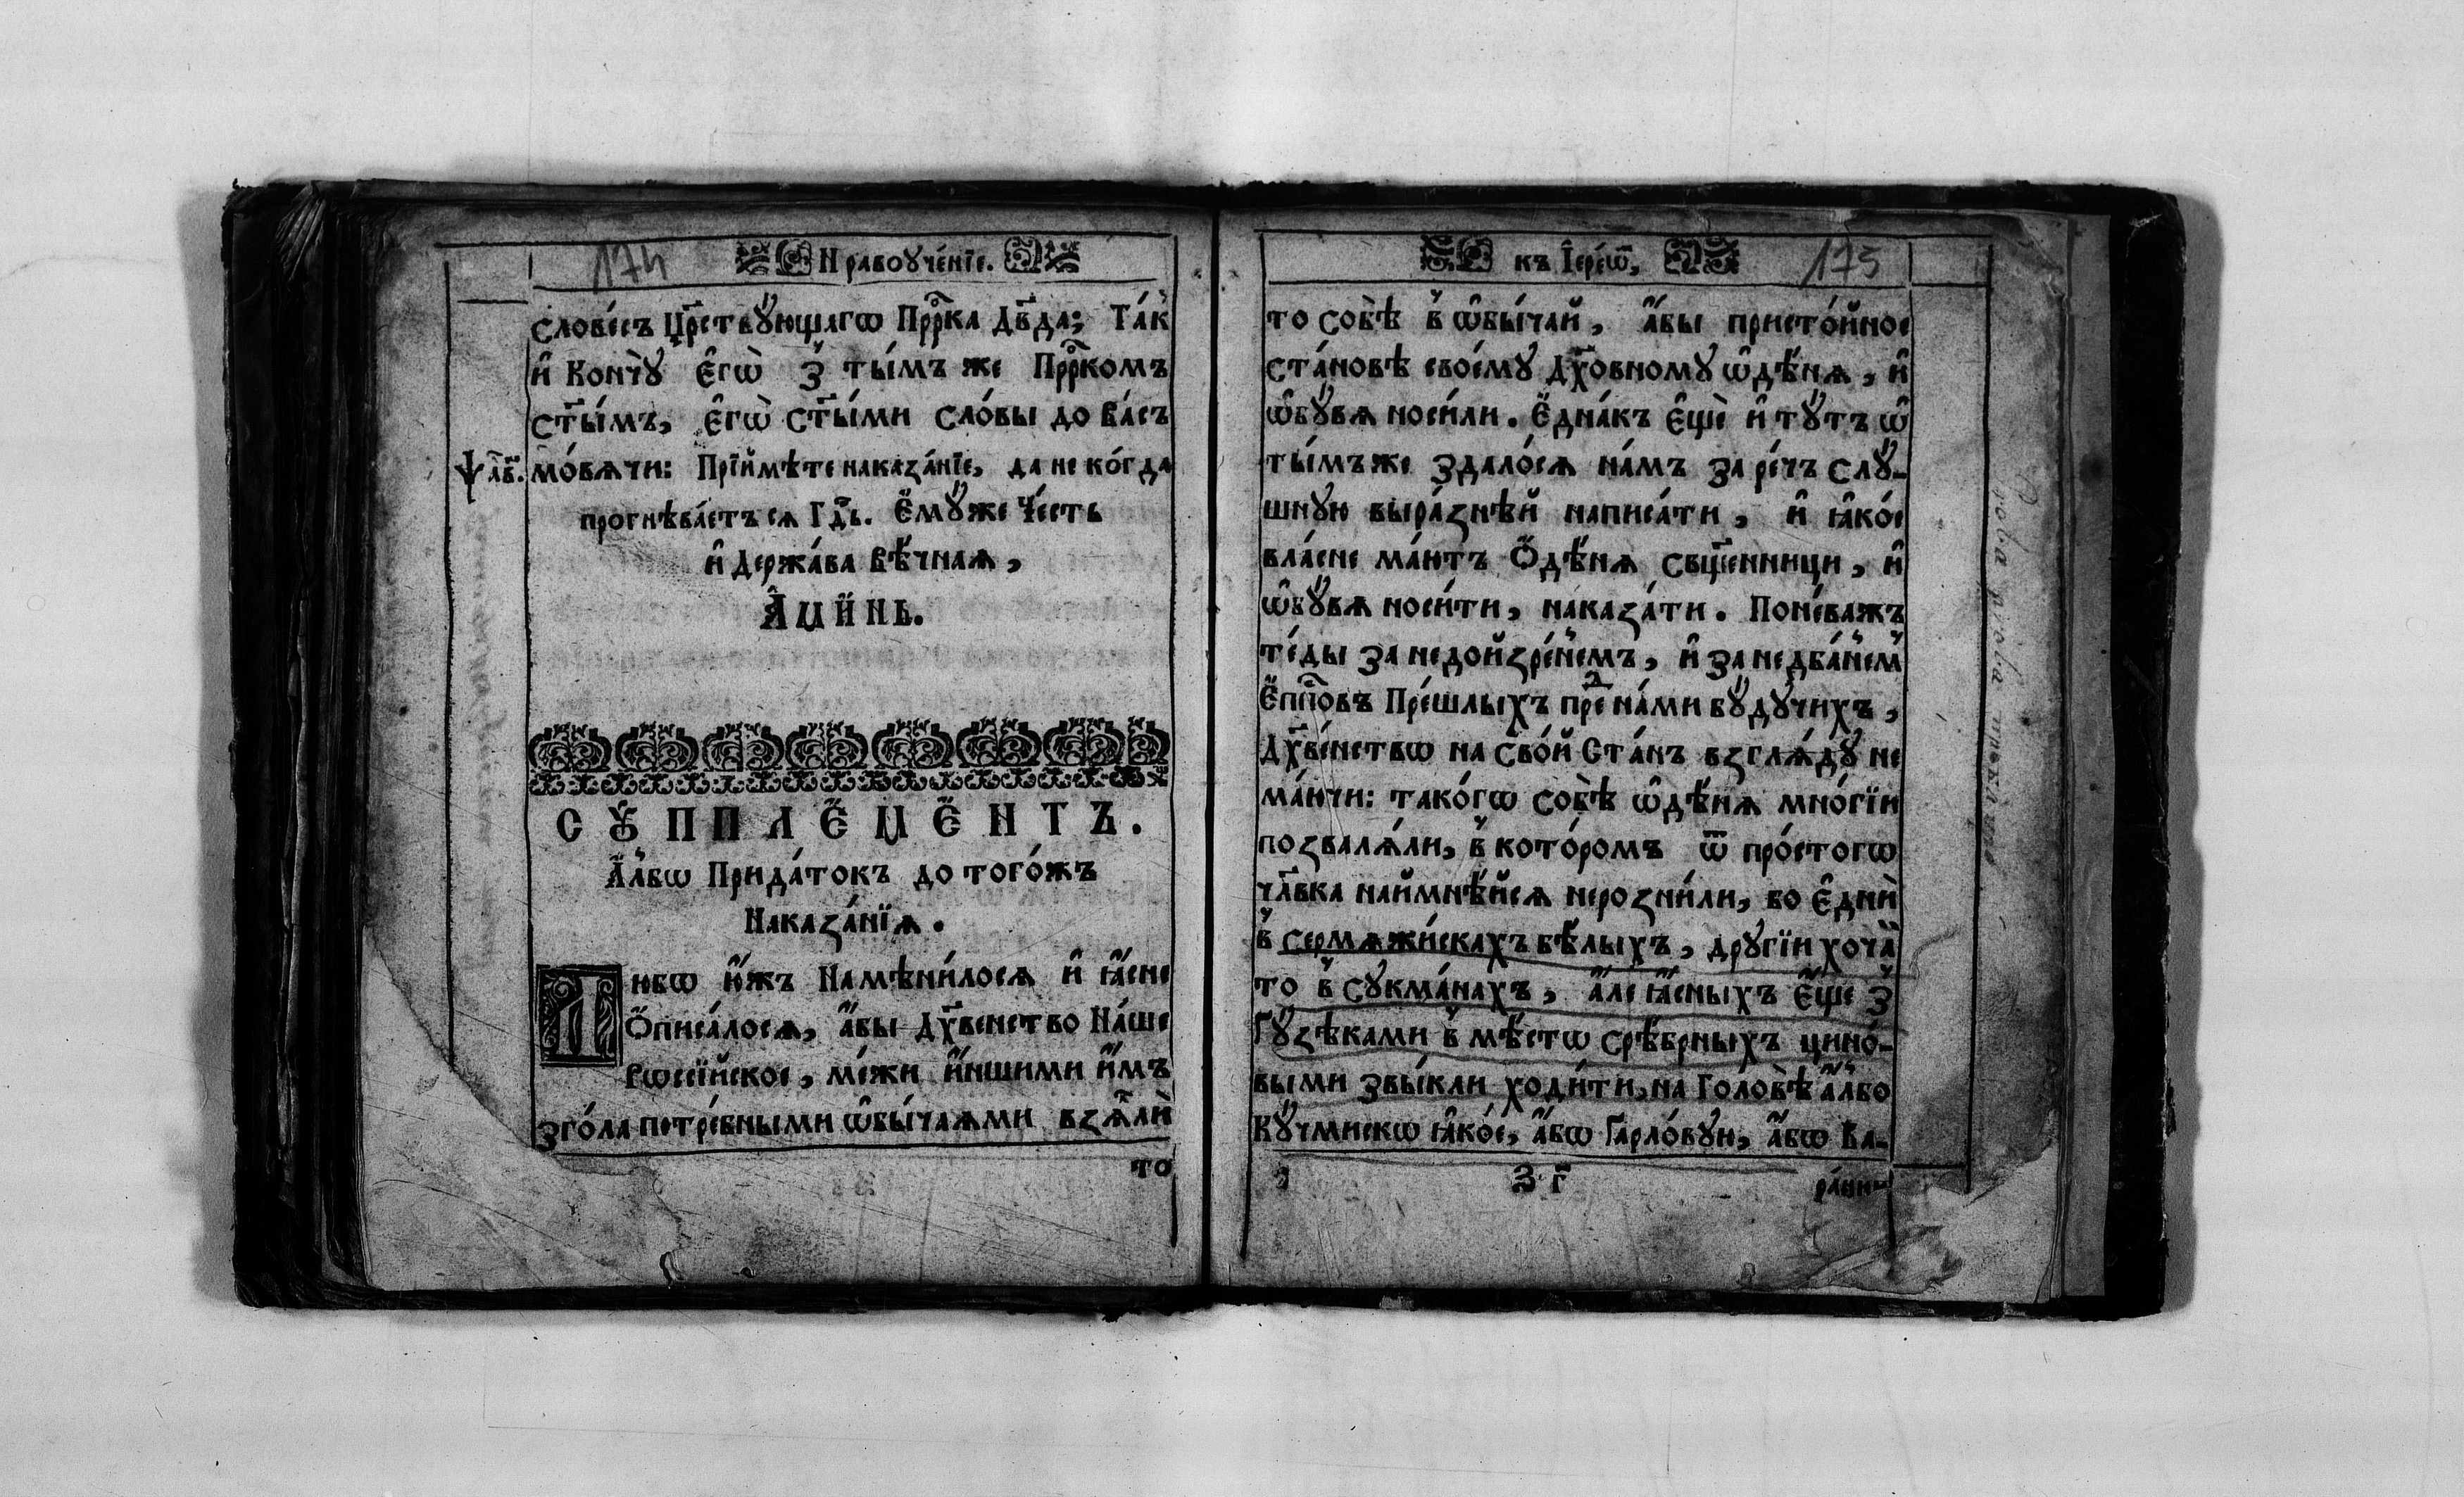 174
Нравоꙋче́нїе.
слове́съ Црⷭ҇твꙋ́ющагѡ Прⷪ҇рка Дв҃да; Та́к
и҆ Кончꙋ̀ є҆гѡ̀ з̾ ты́мъ же Прⷪ҇ркомъ
ст҃ы́мъ, є҆гѡ̀ ст҃ы́ми сло́вы до ва́съ
Ѱал҃. в҃. мо́вѧчи: Прїймѣ́те наказа́нїе, да не ко́гда
прогнѣва́етъ сѧ Гдⷭ҇ь. Є҆мꙋ́же Че́сть
и҆ Держа́ва вѣ́чнаѧ,
А҆ми́нь.
СꙋППЛЄМЄНТЪ.
А҆́лбѡ Прида́токъ до того́жъ
Наказа́нїѧ.
Любѡ и҆́жъ Намѣни́лосѧ и҆ ꙗ҆́сне
Ѻ҆писа́лосѧ, а҆́бы Дх҃ве́нство На́ше
Рѡссїйское, ме́жи и҆́ншими и҆́мъ
зго́ла потре́бными ѡ҆бы́чаѧми взѧ́ли
то
къ І҆ере́ѡⷨ,
175
то собѣ̀ в̾ ѡ҆бы́чай, а҆́бы присто́йное
ста́новѣ своє́мꙋ Дх҃о́вномꙋ ѡ҆дѣ́нѧ, и҆
ѡ҆́бꙋвѧ носи́ли. Є҆дна́къ є҆щѐ и҆ тꙋ́тъ ѡ҆
ты́мъже здало́сѧ на́мъ за ре́чъ слꙋ́-
шнꙋю выра́знѣй написа́ти, и҆ ꙗ҆ко́е
вла́сне ма́ютъ Ѻ҆дѣ́нѧ сщ҃е́нници, и҆
ѡ҆́бꙋвѧ носи́ти, наказа́ти. Поне́важъ
те́ды за недойзре́нїемъ, и҆ за недба́нїем
Є҆пⷭ҇повъ Пре́шлыхъ преⷣ на́ми бꙋ́дꙋчихъ,
Дх҃ве́нствѡ на сво́й Ста́нъ взглѧ́дꙋ не
ма́ючи: тако́гѡ собѣ̀ ѡ҆дѣ́нѧ мно́гїи
позвалѧ́ли, в̾ кото́ромъ ѿ про́стогѡ
чл҃вка наймнѣ́йсѧ нерозни́ли, бо є҆дни̾
в̾ сермѧжи́скахъ бѣ́лыхъ, дрꙋгїи хоча̾
то в̾ сꙋкма́нахъ, а҆́ле ꙗ҆́сныхъ є҆ще з̾
Гꙋ́зѣками в̾ мѣ́стѡ срѣ́брныхъ цино́-
выми звы́кли ходи́ти, на Головѣ̀ а҆́лбо
Кꙋ́чмискѡ ꙗ҆ко́е, а҆́бѡ Гарло́вꙋю, а҆́бѡ Ба-
З г҃
ра́нн-